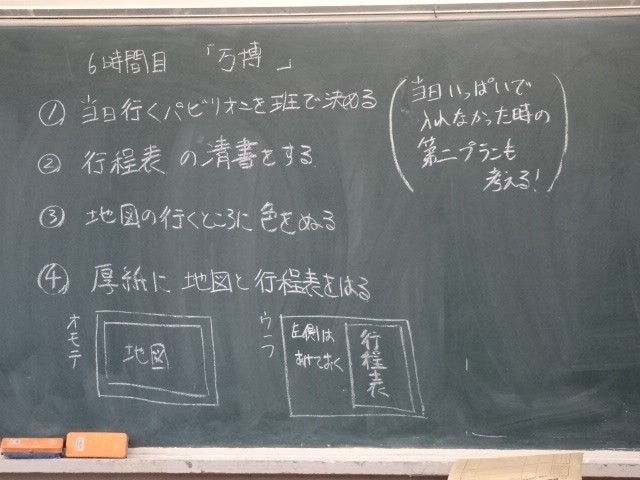 6時間目 「万博」
① 当日行くパビリオンを班で決める
(当日いっぱいで
入れなかった時の
第二プランも
考える!)
② 行程表の清書をする
③ 地図の行くところに色をぬる
④ 厚紙に地図と行程表をはる
オモテ
地図
ウラ
左側は
あけておく
行程表